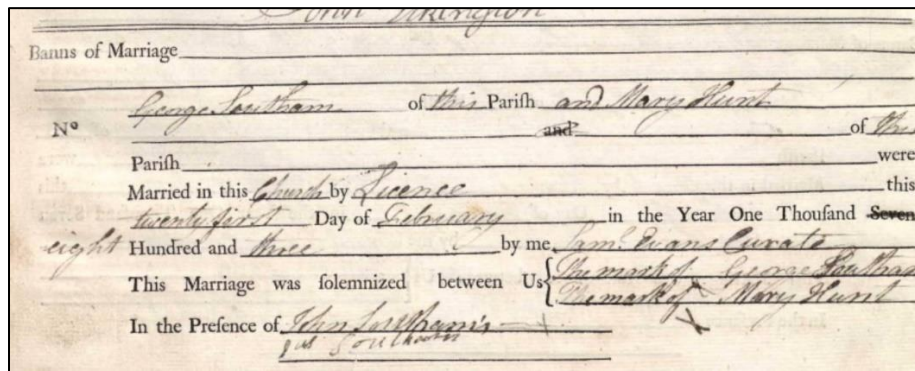 Banns of Marriage
George Southam of this Parish and Mary Hunt
Nº and of this
Parish were
Married in this Church by Licence this
twenty first Day of February in the Year One Thousand Seven
eight Hundred and three by me Saml. Evans Curate
This Marriage was solemnized between Us The mark of George Southam
The mark of X Mary Hunt
In the Presence of John Southam's